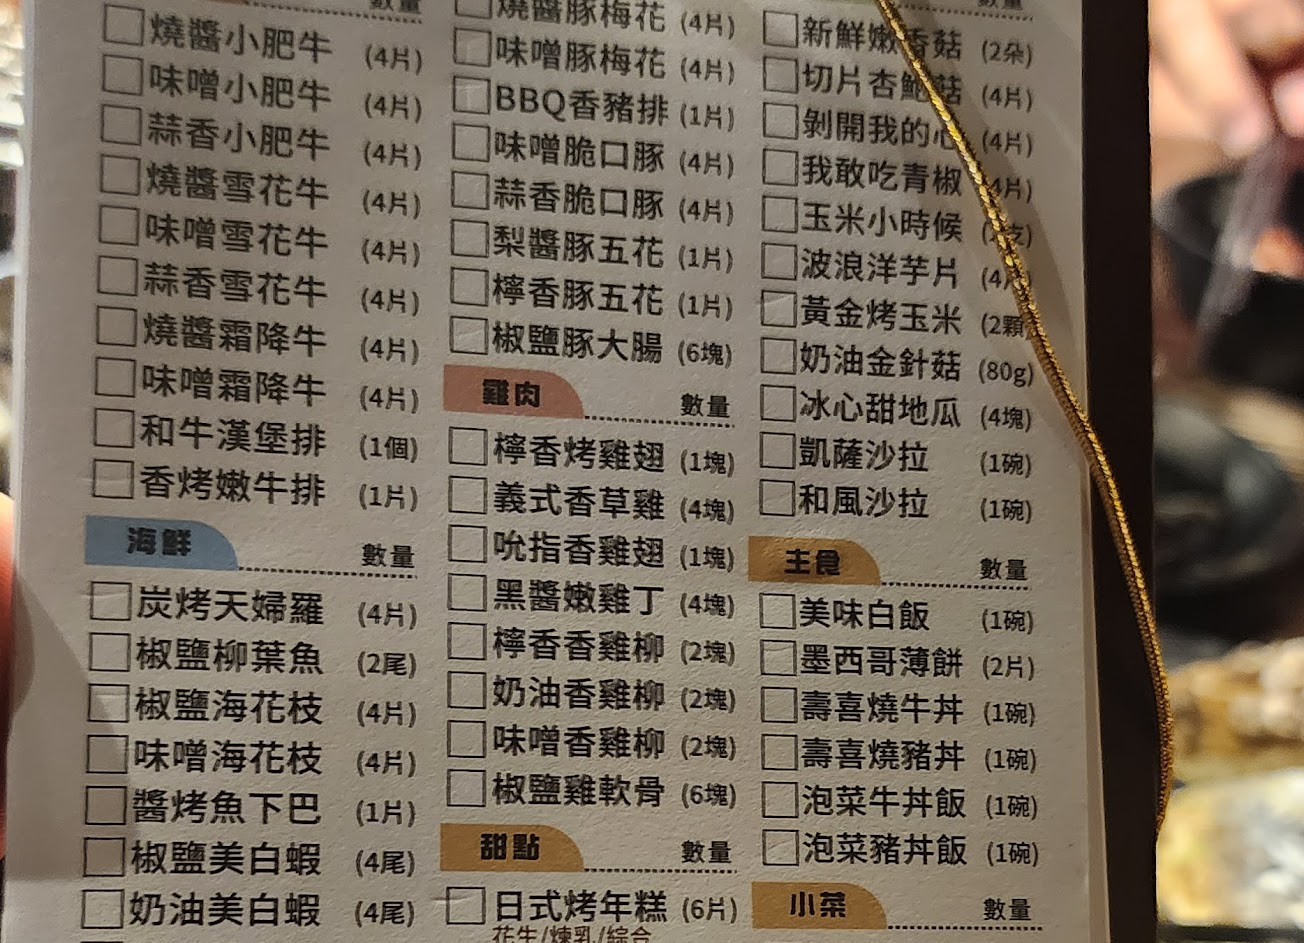 數量
燒醬小肥牛 (4片)
味噌小肥牛 (4片)
蒜香小肥牛 (4片)
燒醬雪花牛 (4片)
味噌雪花牛 (4片)
蒜香雪花牛 (4片)
燒醬霜降牛 (4片)
味噌霜降牛 (4片)
和牛漢堡排 (1個)
香烤嫩牛排 (1片)
海鮮 數量
炭烤天婦羅 (4片)
椒鹽柳葉魚 (2尾)
椒鹽海花枝 (4片)
味噌海花枝 (4片)
醬烤魚下巴 (1片)
椒鹽美白蝦 (4尾)
奶油美白蝦 (4尾)
燒醬豚梅花 (4片)
味噌豚梅花 (4片)
BBQ香豬排 (1片)
味噌脆口豚 (4片)
蒜香脆口豚 (4片)
梨醬豚五花 (1片)
檸香豚五花 (1片)
椒鹽豚大腸 (6塊)
雞肉 數量
檸香烤雞翅 (1塊)
義式香草雞 (4塊)
吮指香雞翅 (1塊)
黑醬嫩雞丁 (4塊)
檸香香雞柳 (2塊)
奶油香雞柳 (2塊)
味噌香雞柳 (2塊)
椒鹽雞軟骨 (6塊)
甜點 數量
日式烤年糕 (6片)
花生/煉乳/綜合
數量
新鮮嫩香菇 (2朵)
切片杏鮑菇 (4片)
剝開我的心 (4片)
我敢吃青椒 (4片)
玉米小時候 (2支)
波浪洋芋片 (4片)
黃金烤玉米 (2顆)
奶油金針菇 (80g)
冰心甜地瓜 (4塊)
凱薩沙拉 (1碗)
和風沙拉 (1碗)
主食 數量
美味白飯 (1碗)
墨西哥薄餅 (2片)
壽喜燒牛丼 (1碗)
壽喜燒豬丼 (1碗)
泡菜牛丼飯 (1碗)
泡菜豬丼飯 (1碗)
小菜 數量